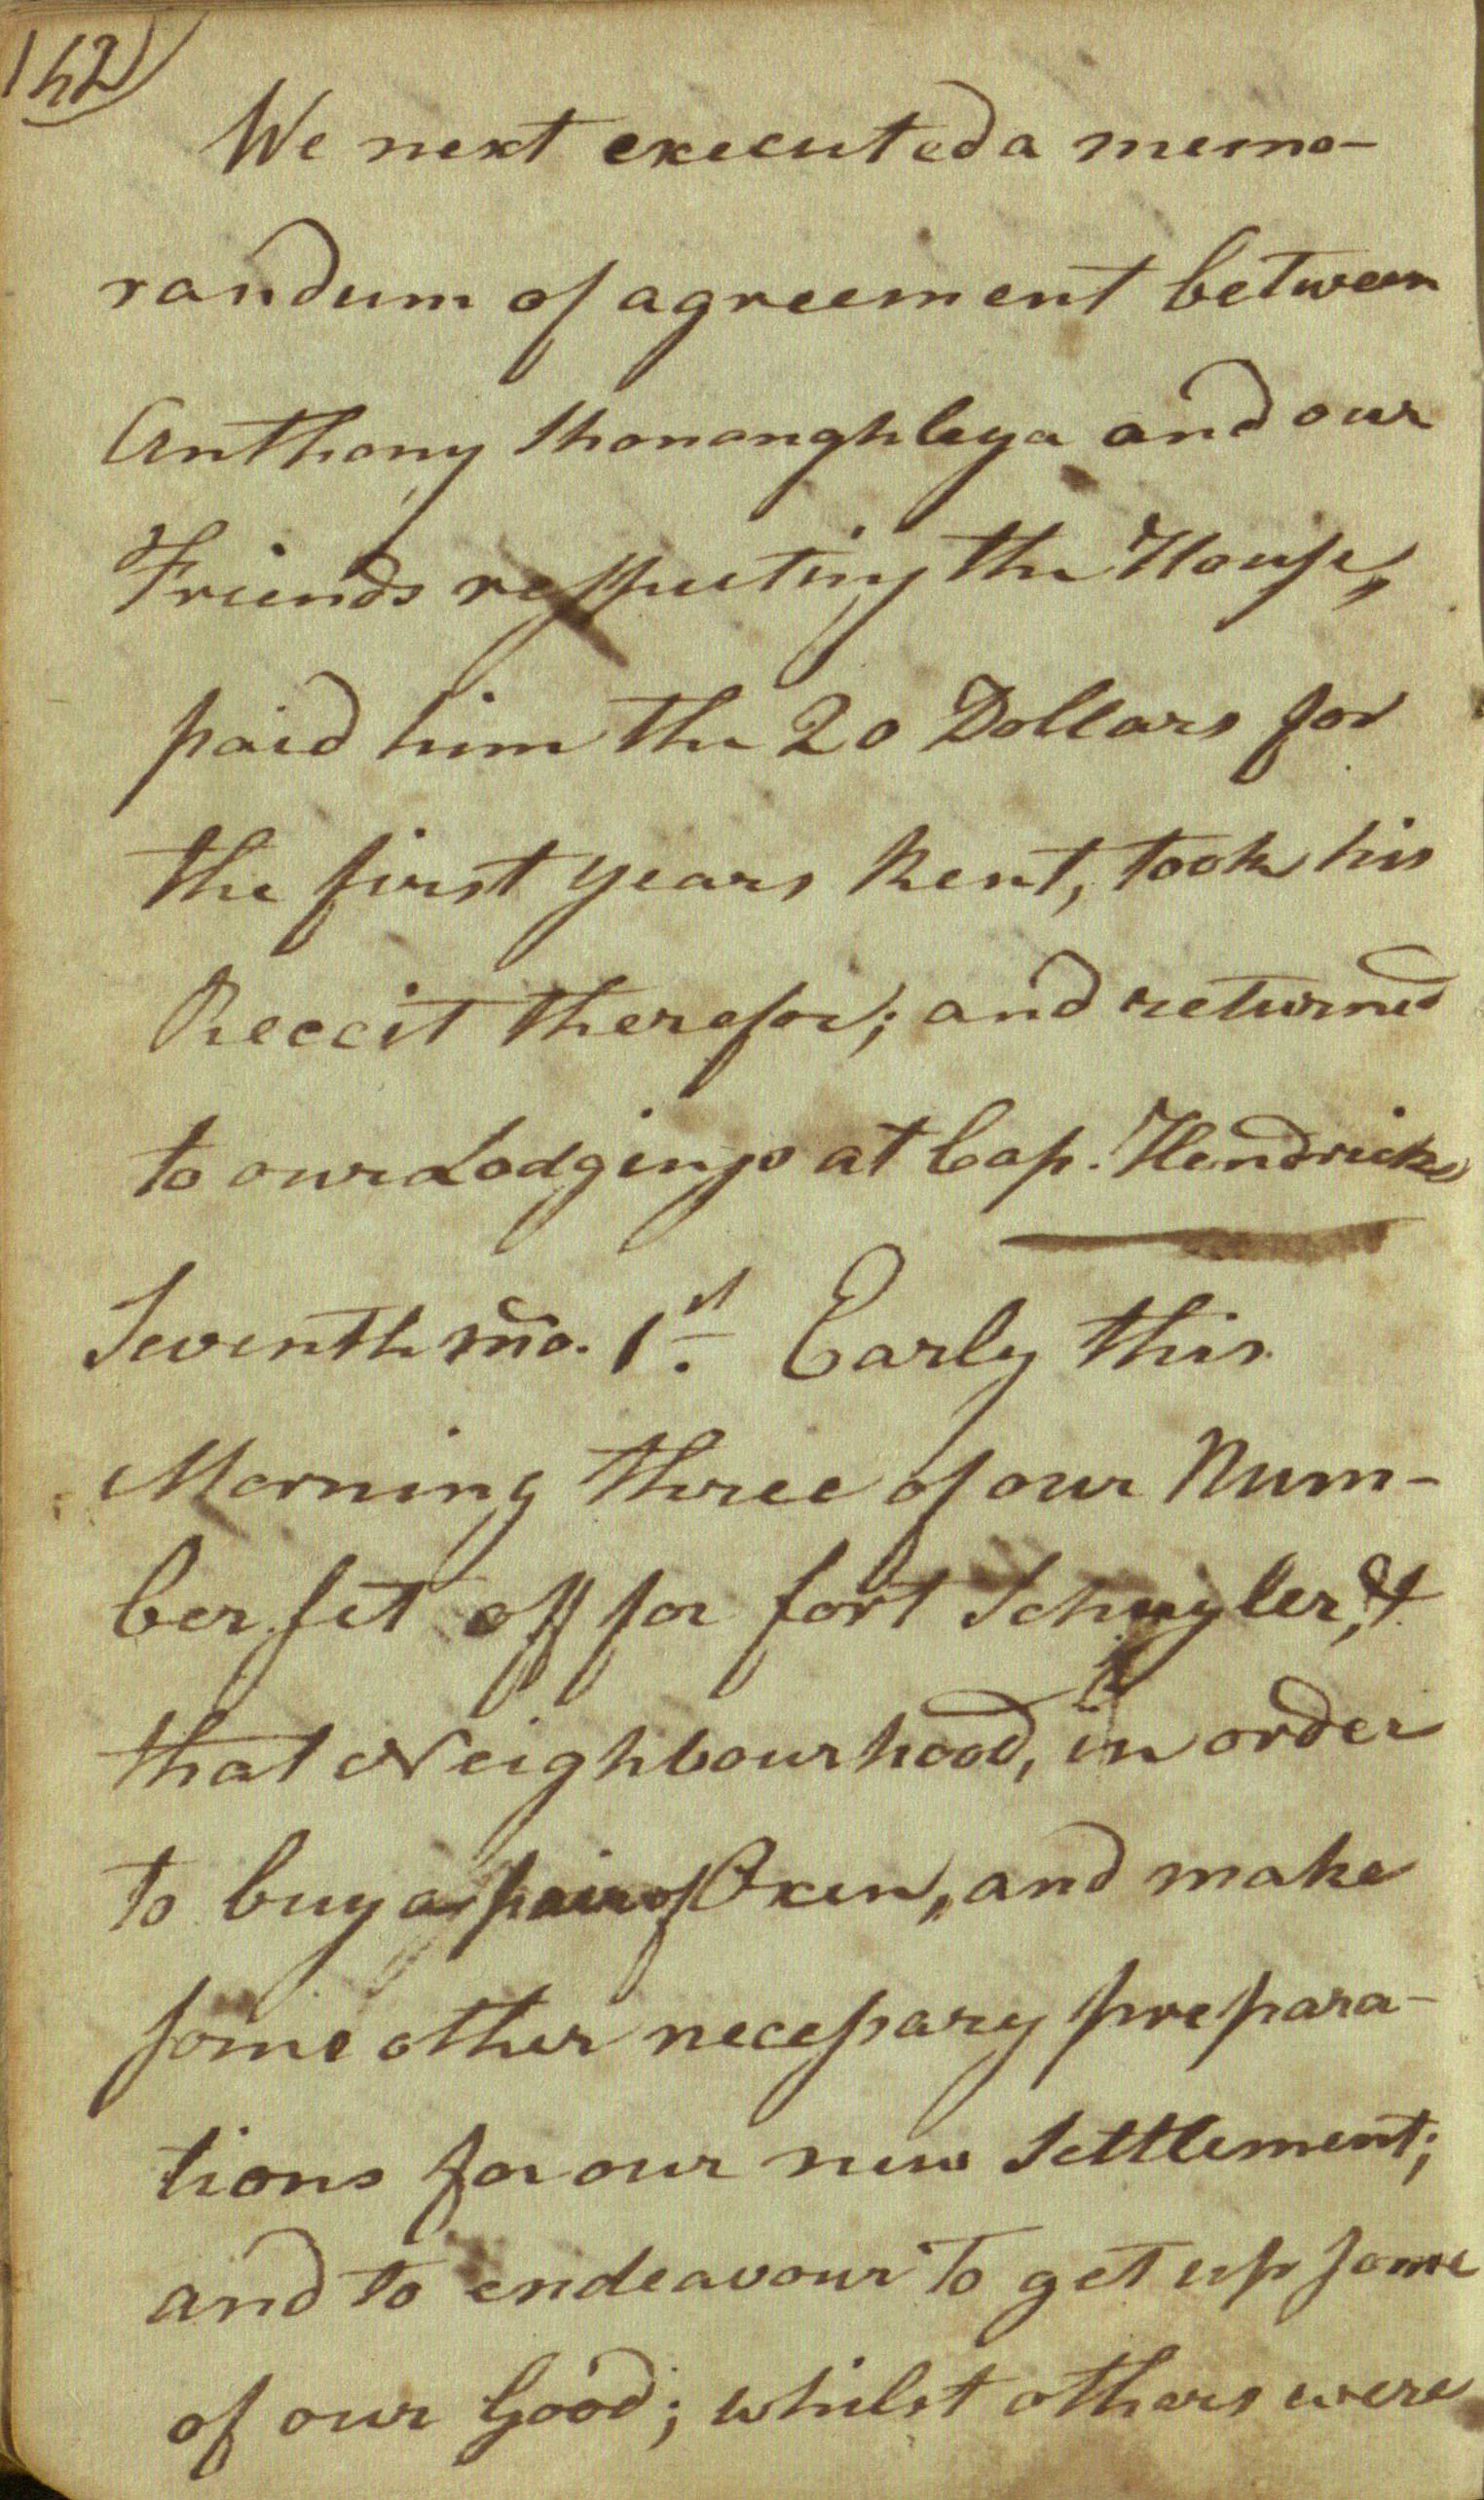 142
We next executed a memo-
randum of agreement between
Anthony Shonanghleya and our
Friends respecting the House,
paid him the 20 Dollars for
the first years Rent, took his
Receit therefor; and returned
to our Lodgings at Cap. Hendricks
Seventh mo. 1st. Early this
Morning three of our Num-
ber set off for fort Schuyler, &
that Neighbourhood, in order
to buy a pair of Oxen, and make
some other necessary prepara-
tions for our new Settlement;
and to endeavour to get up some
of our Good; whilst others were